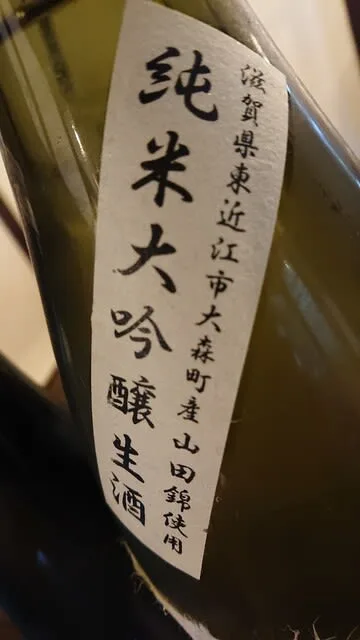 滋賀県東近江市大森町産山田錦使用
純米大吟醸生酒